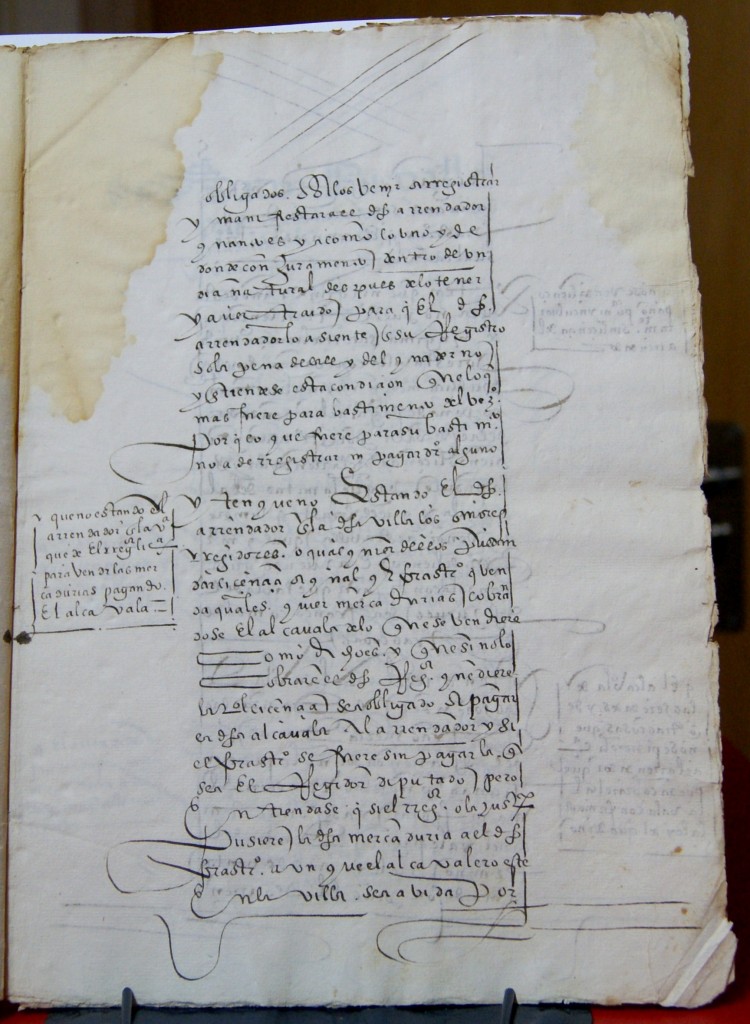 obligados. A los venir a rregistrar
y manifestar a el dho arrendador
quantos y como lo uno y de
donde con juramento dentro de un
dia natural despues de lo tener
y aver traido para q El dho
arrendador lo asiente su Registro
so la pena del y del quaderno
y Entiendese esta condicion En lo q
mas fuere para bastimento del vezo
Por q lo que fuere para su bastimo
no a de rregistrar ni pagar dro alguno
y ten que no Estando El dho
arrendador En la dha villa los señores
rregidores. o qualquier dellos Puedan
dar licencia a qualqr forastro q ven
da qualesquier mercadurias cobran
dose El alcavala de lo que se vendiere
como dho es. y que si no lo
cobrare El dho Regor que diere
la tal licencia sea obligado A pagar
el dha alcavala. Al arrendador y si
el forastro se fuere sin pagarla. q
sea El Regidor diputado pero
Entiendase q si el rregor o la justa
Pusiere la dha mercaduria a el dho
forastro. aunque el alcavalero este
En la villa. sea avida Por
y que no estando el
arrendador En la va
que de El rregor lica
para vender las mer
cadurias pagando.
El alcavala